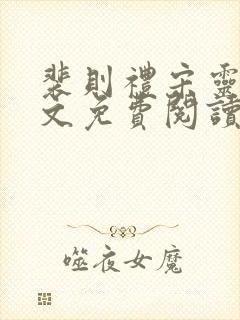 裴則禮宋靈
文免費閱讀
噬夜女魔